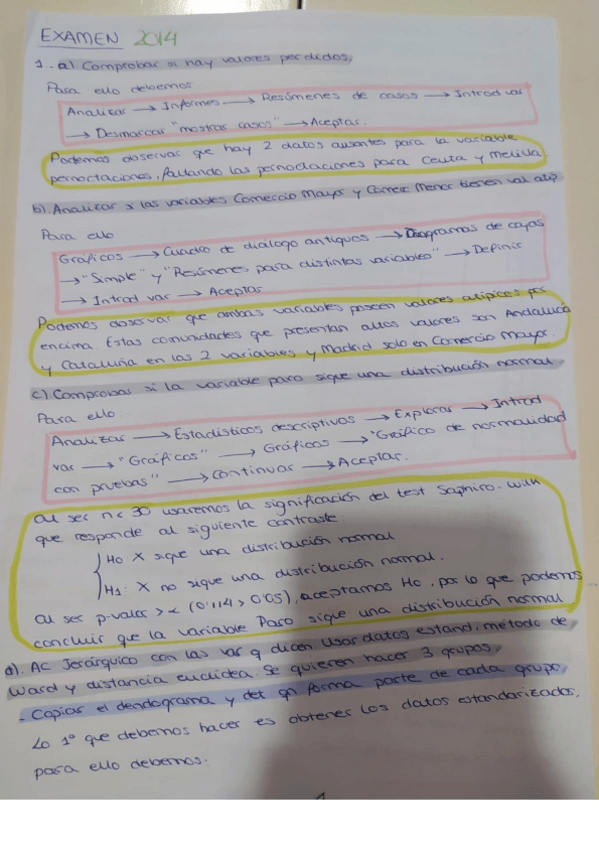 EXAMEN 2014
1. a) Comprobar si hay valores perdidos,
Para ello debemos
Analizar → Informes → Resúmenes de casos → Introd var
→ Desmarcar "mostrar casos" → Aceptar.
Podemos observar que hay 2 datos ausentes para la variable
pernoctaciones, faltando las pernoctaciones para Ceuta y Melilla.
b) Analizar si las variables Comercio Mayor y Comerc Menor tienen val atíp
Para ello
Gráficos → Cuadro de diálogo antiguos → Diagramas de cajas
→ "Simple" y "Resúmenes para distintas variables" → Definir
→ Introd var → Aceptar
Podemos observar que ambas variables poseen valores atípicos por
encima. Estas comunidades que presentan altos valores son Andalucía
y Cataluña en las 2 variables y Madrid solo en Comercio Mayor.
c) Comprobar si la variable paro sigue una distribución normal.
Para ello:
Analizar → Estadísticos descriptivos → Explorar → Introd
var → "Gráficos" → Gráficos → "Gráfico de normalidad
con pruebas" → Continuar → Aceptar.
Al ser n < 30 usaremos la significación del test Saphiro-Wilk
que responde al siguiente contraste
H0 X sigue una distribución normal
H1: X no sigue una distribución normal.
Al ser p-valor > α (0'114 > 0'05), aceptamos H0, por lo que podemos
concluir que la variable Paro sigue una distribución normal
d). AC Jerárquico con las var q dicen Usar datos estand, método de
Ward y distancia euclídea. Se quieren hacer 3 grupos,
- Copiar el dendograma y det qn forma parte de cada grupo,
Lo 1º que debemos hacer es obtener los datos estandarizados,
para ello debemos: